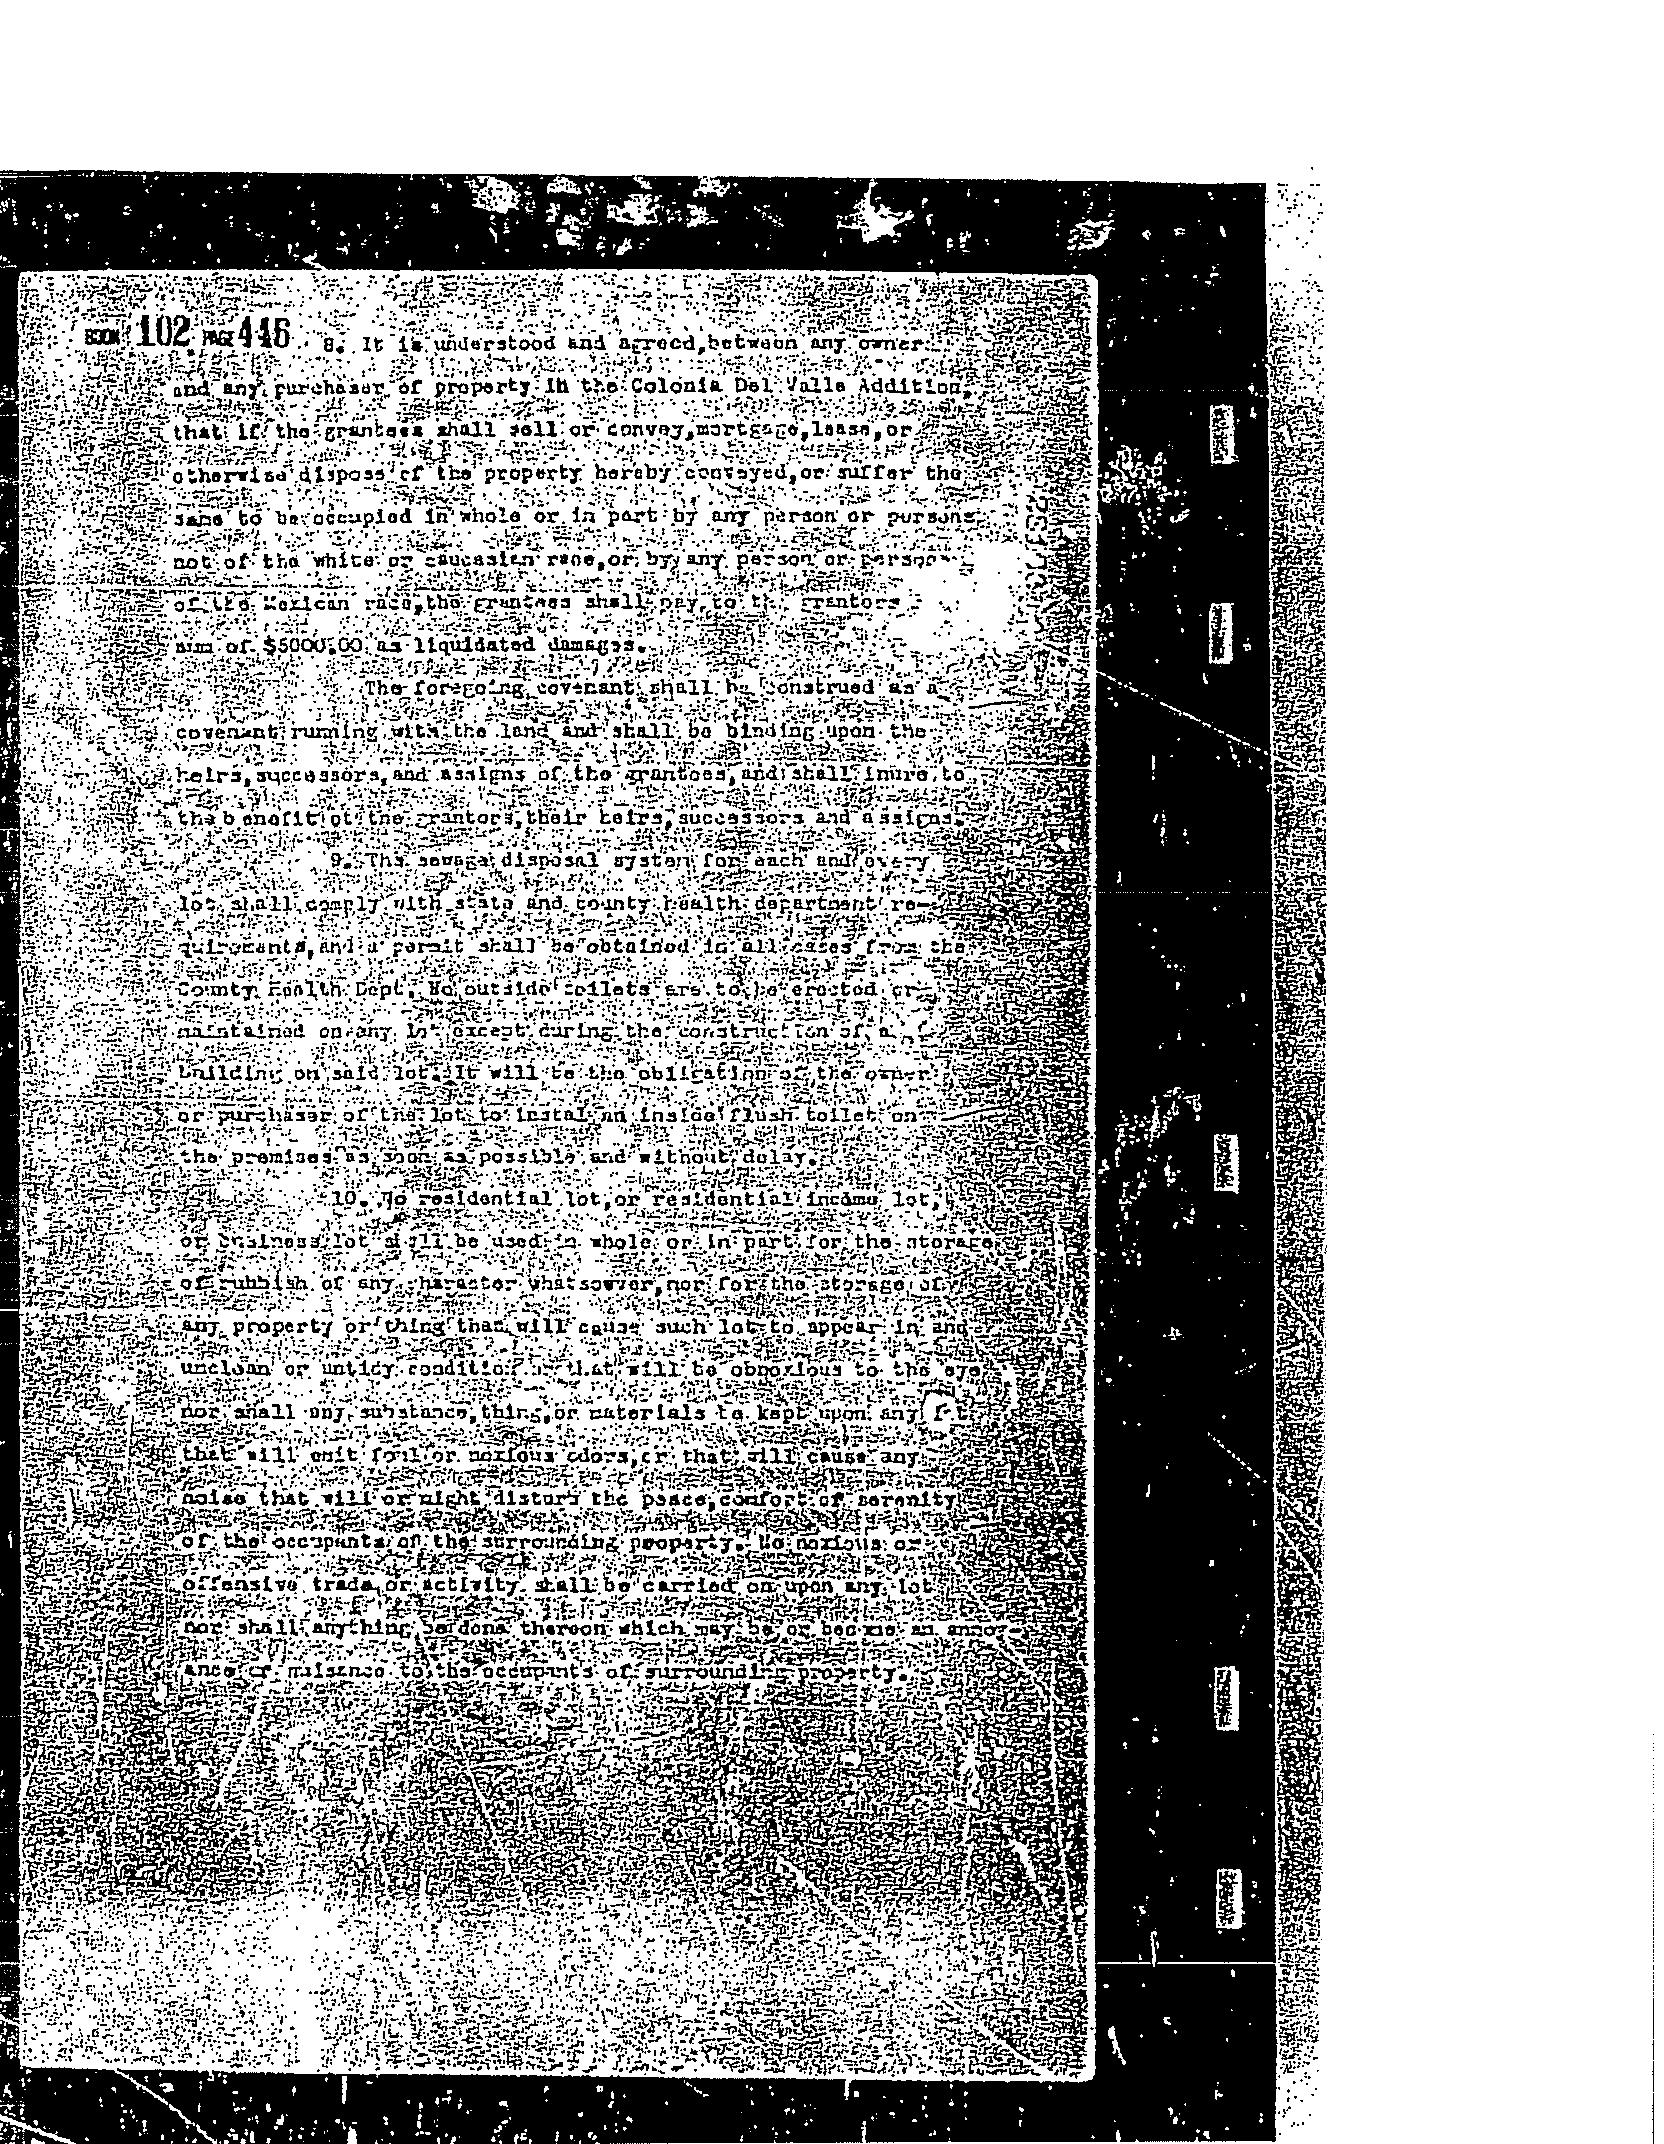 BOOK 102 PAGE 446 8. It is understood and agreed,between any owner
and any purchaser of property in the Colonia Del Valle Addition,
that if the grantees shall sell or convey,mortgage,lease,or
otherwise dispose of the property hereby conveyed,or suffer the
same to be occupied in whole or in part by any person or persons
not of the white or caucasian race,or by any person or persons
of the Mexican race,the grantees shall pay to the grantors
sum of $5000.00 as liquidated damages.
The foregoing covenant shall be construed as a
covenant running with the land and shall be binding upon the
heirs,successors,and assigns of the grantees,and shall inure to
the benefit of the grantors,their heirs,successors and assigns.
9. The sewage disposal system for each and every
lot shall comply with state and county health department re-
quirements,and a permit shall be obtained in all cases from the
County Health Dept. No outside toilets are to be erected or
maintained on any lot except during the construction of a
building on said lot. It will be the obligation of the owner
or purchaser of the lot to instal an inside flush toilet on
the premises as soon as possible and without delay.
10. No residential lot,or residential income lot,
or business lot shall be used in whole or in part for the storage
of rubbish of any character whatsoever,nor for the storage of
any property or thing that will cause such lot to appear in and
unclean or untidy condition or that will be obnoxious to the eye
nor shall any substance,thing,or materials be kept upon any lot
that will emit foul or noxious odors,or that will cause any
noise that will or might disturb the peace,comfort of serenity
of the occupants of the surrounding property. No noxious or
offensive trade or activity shall be carried on upon any lot
nor shall anything be done thereon which may be or become an anno
ance or nuisance to the occupants of surrounding property.